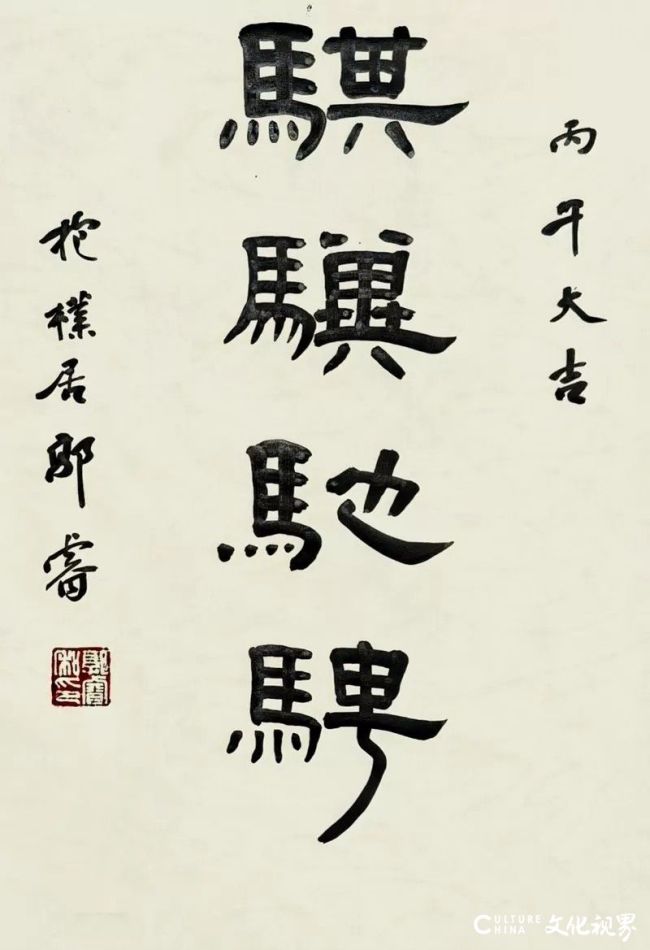 丙午大吉
騏驥馳騁
抱樸居郭睿
CULTURE
CHINA
文化视界